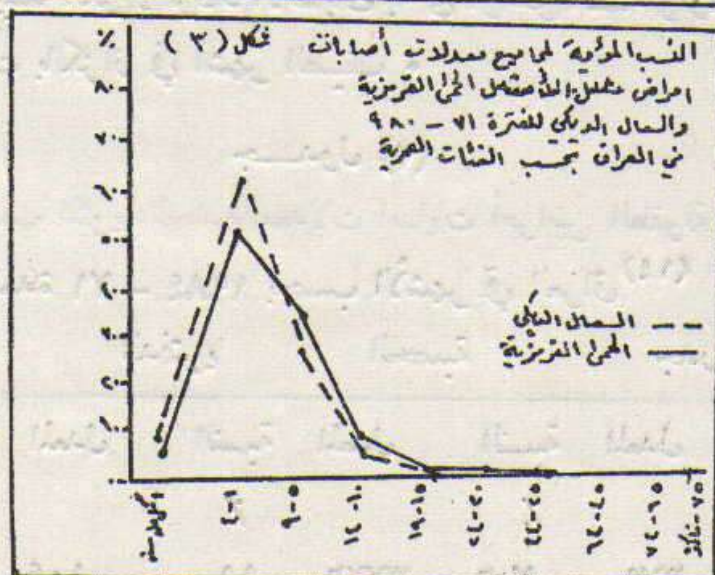 النسب المئوية لمجاميع معدلات أصابات شكل (٣)
امراض الحمى القرمزية
والسعال الديكي للفترة ٧١ – ٩٨٠
في العراق بحسب الفئات العمرية
%
٨٠
٧٠
٦٠
٥٠
٤٠
٣٠
٢٠
١٠
٠٠
السعال الديكي
الحمى القرمزية
أقل من سنة
٤-١
٩-٥
١٤-١٠
١٩-١٥
٢٤-٢٠
٤٤-٢٥
٦٤-٤٥
٧٤-٦٥
٧٥-فأكثر